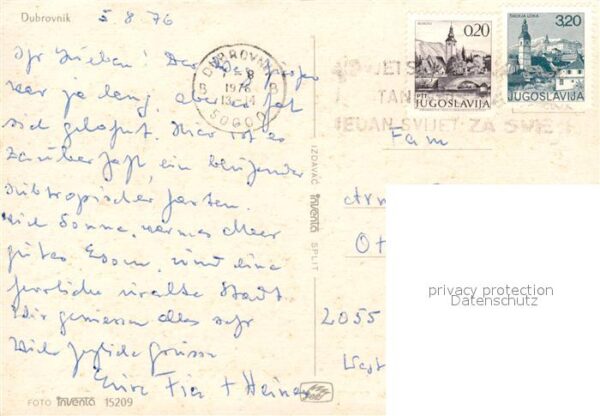 Dubrovnik
5 8 76
Ihr Lieben! Der
war ja lang, aber es hat
sich gelohnt. Hier ist es
zauberhaft, ein blühender
subtropischer Garten.
Viel Sonne, warmes Meer
gutes Essen, und eine
herrliche uralte Stadt
Wir genießen alles sehr
Viele herzliche Grüsse
+ Heiner
FOTO inventa 15209
IZDAVAČ inventa SPLIT
DUBROVNIK
1976
13-14
50000
B B
SVIJET
JEDAN SVIJET ZA SVE
0.20
PTT
JUGOSLAVIJA
ŠKOFJA LOKA
3,20
JUGOSLAVIJA
Fam
Ot
2055
privacy protection
Datenschutz